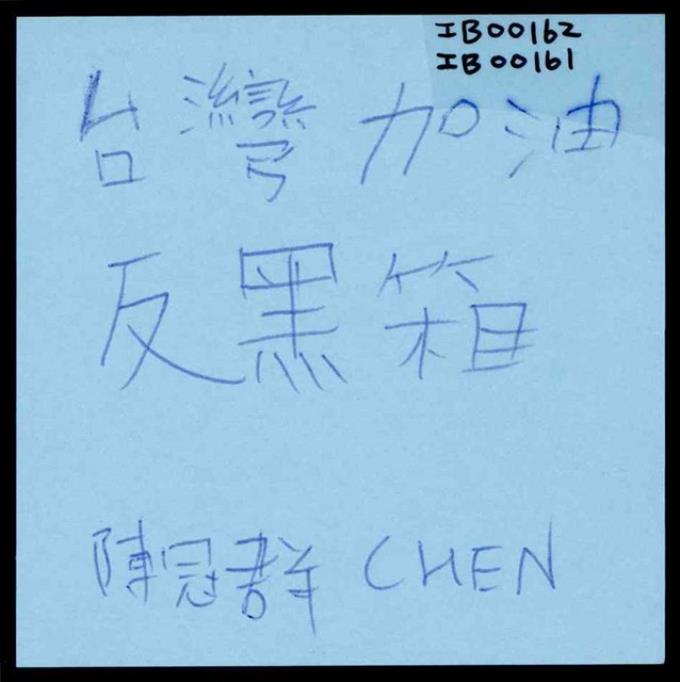 IB00162
IB00161
台灣加油
反黑箱
陳冠群 CHEN